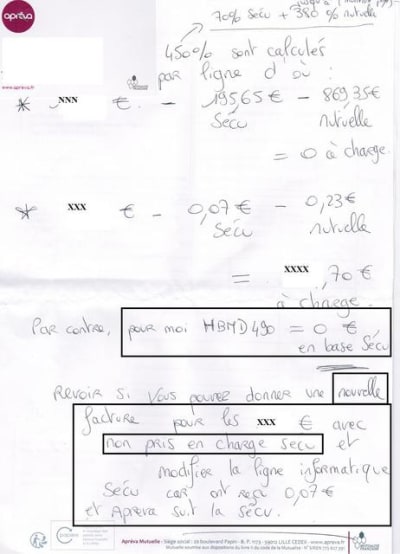 apréva
jusqu'à
70% Sécu + 380 % mutuelle
450% sont calculés
par ligne d'où :
www.apreva.fr
* NNN € - 195,65 € - 869,35€
Sécu mutuelle
= 0 à charge
* xxx € - 0,07 € - 0,23 €
Sécu mutuelle
= xxxx ,70 €
à charge.
Par contre, pour moi HBMD490 = 0 €
en base Sécu
Revoir si vous pouvez donner une nouvelle
facture pour les xxx € avec
non pris en charge secu et
modifier la ligne informatique
Sécu car ont reçu 0,07€
et Apréva suit la sécu.
Apréva Mutuelle - Siège social : 20 boulevard Papin - B. P. 1173 - 59012 LILLE CEDEX - www.apreva.fr
Mutuelle soumise aux dispositions du livre II du code de la Mutualité